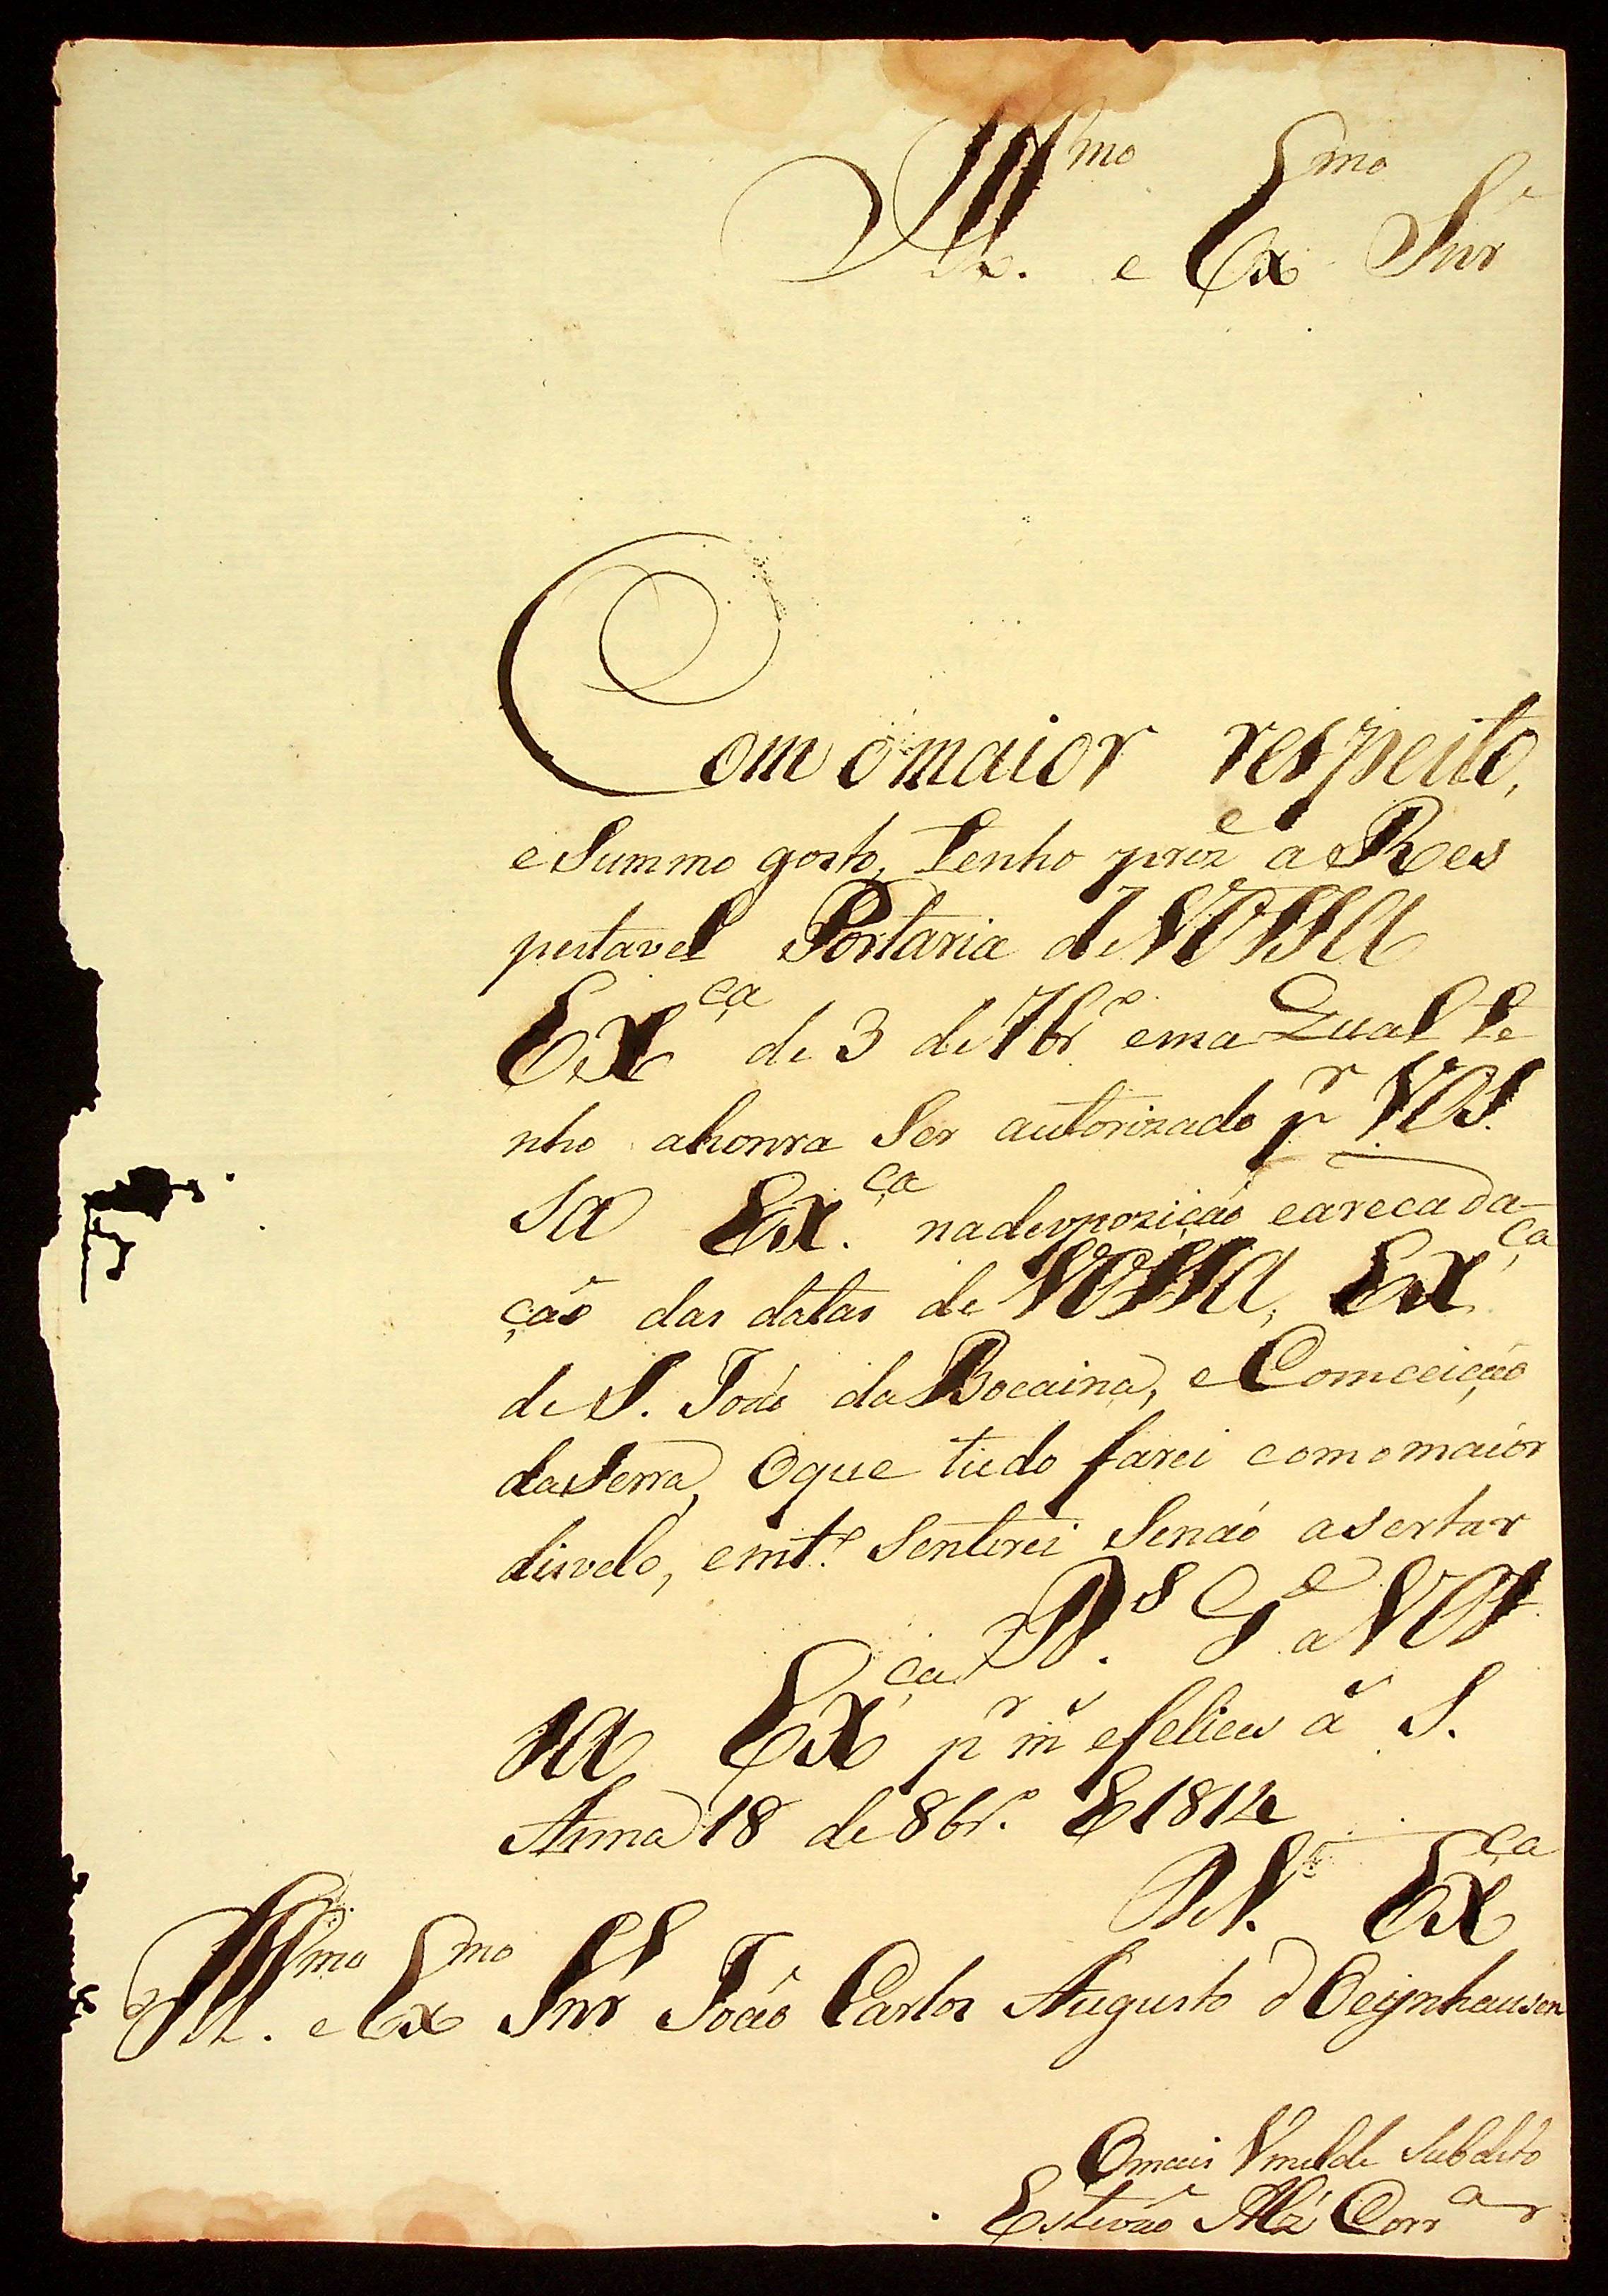 Ill.mo e Ex.mo Snr
Com o maior respeito,
e Summo gosto, tenho prez.e a Res
peitavel Portaria de VOSSA
EX.ça de 3 de 7br.o em a Qual te
nho ahonra Ser autorizado p.r VOS
SA EX.ça nadespozição earecada
ção das datas de VOSSA, EX.ça
de S. João da Bocaina, e Comceição
da Serra, Oque tudo farei com o maior
disvelo, emt.o Sentirei Senão asertar
D.s G.e a VOS
SA EX.ça p.r m.s efelices a.s S.
Anna 18 de 8br.o E 1814
D.V. EX.ça
Ill.mo e Ex.mo Snr João Carlos Augusto d Oeynhausen
Omais Vmilde Subdito
Estevão Alz Corr.a